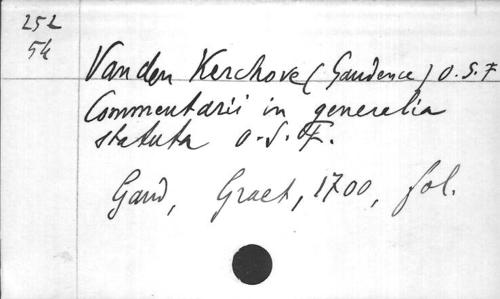 252
54
Van den Kerchove (Gaudence) O.S.F
Commentarii in generelia
statuta O.S.F.
Gand, Graet, 1700, fol.